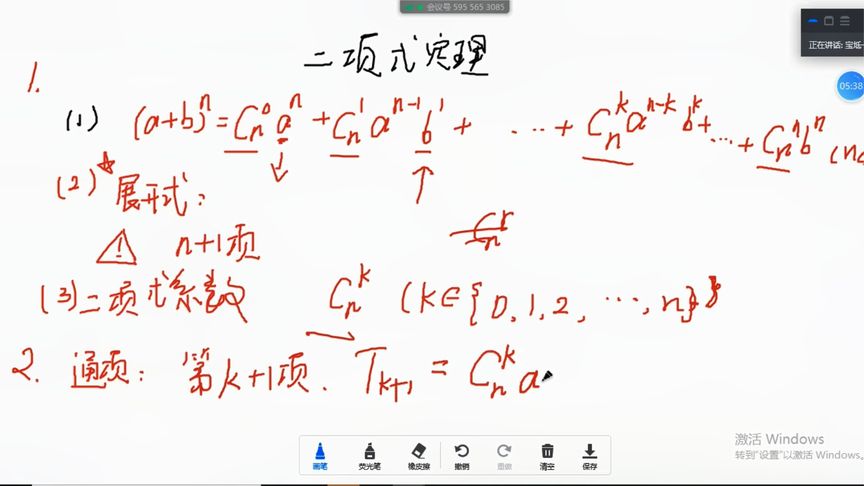 会议号 595 565 3085
正在讲话: 宝坻
05:38
二项式定理
1.
(1) (a+b)^n = C_n^0 a^n + C_n^1 a^{n-1} b^1 + ... + C_n^k a^{n-k} b^k + ... + C_n^n b^n (n∈
(2) 展开式:
⚠ n+1项
C_n^r
(3) 二项式系数 C_n^k (k∈{0,1,2,…,n})
2. 通项: 第k+1项. T_{k+1} = C_n^k a
激活 Windows
转到"设置"以激活 Windows。
画笔 荧光笔 橡皮擦 撤销 重做 清空 保存